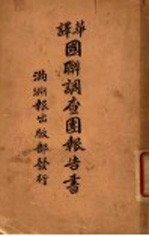 華譯
國聯調查團報告書
滿洲報出版部發行